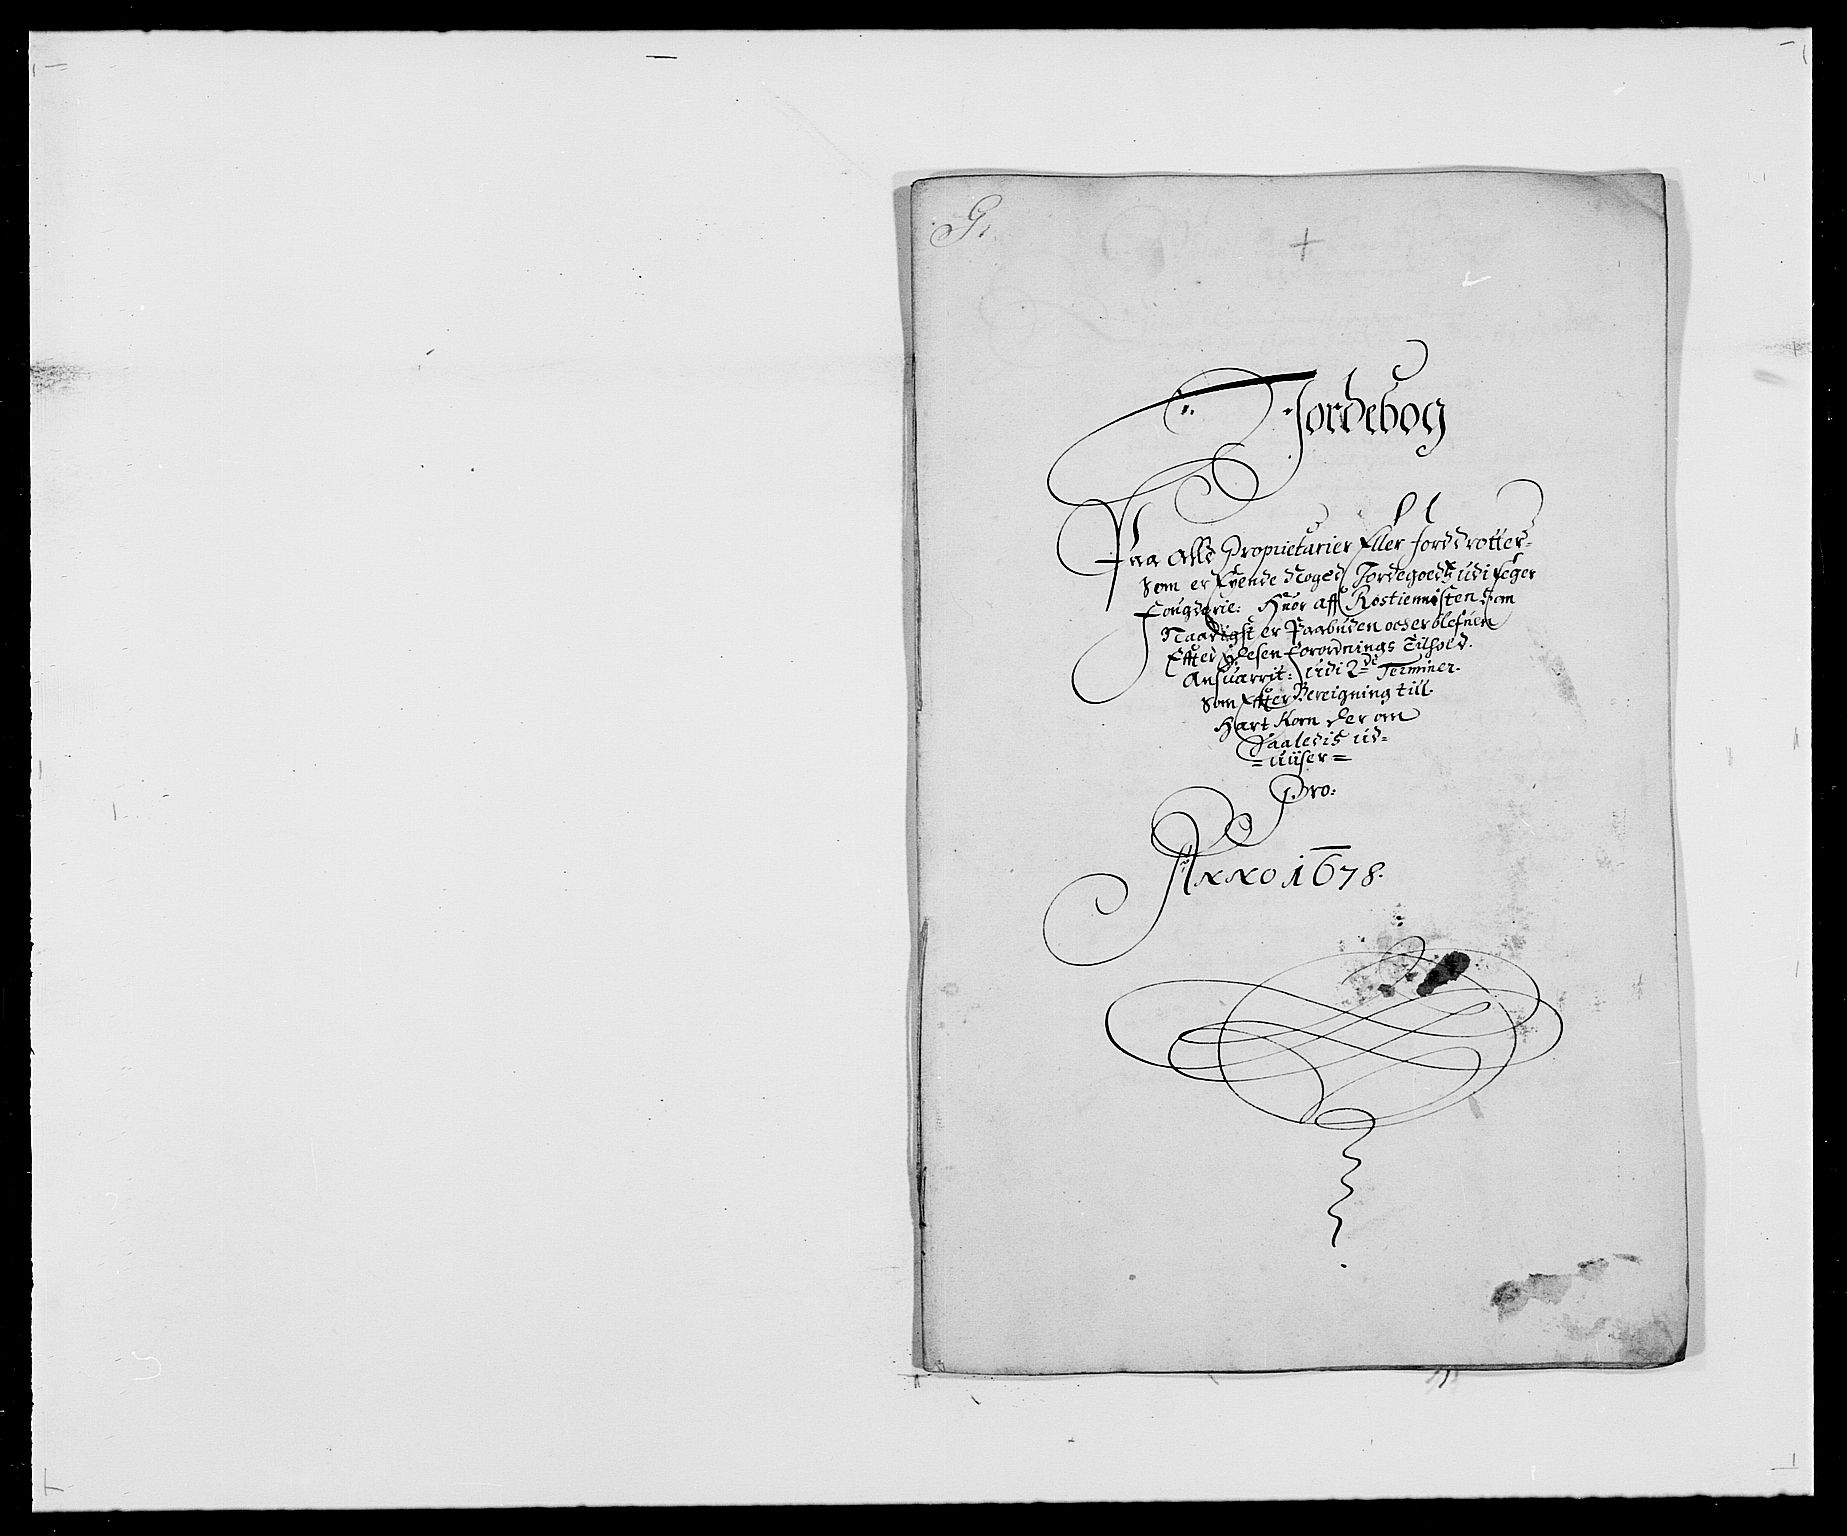 G.
Jordebog
Paa Alle Proprietarier Eller Jorddrotter
Som er Eyende Noged Jordegoeds udi
fougderie: Huor aff Rostienisten Som
Naadigst er Paabuden och er blefuen
Effter Forordnings Tilhold.
Ansuarrit: udi 2de Terminer.
Som Effter Bereigning till
Hart Korn der om
Saaledis ud=
=uiiser=
Pro:
Anno 1678.